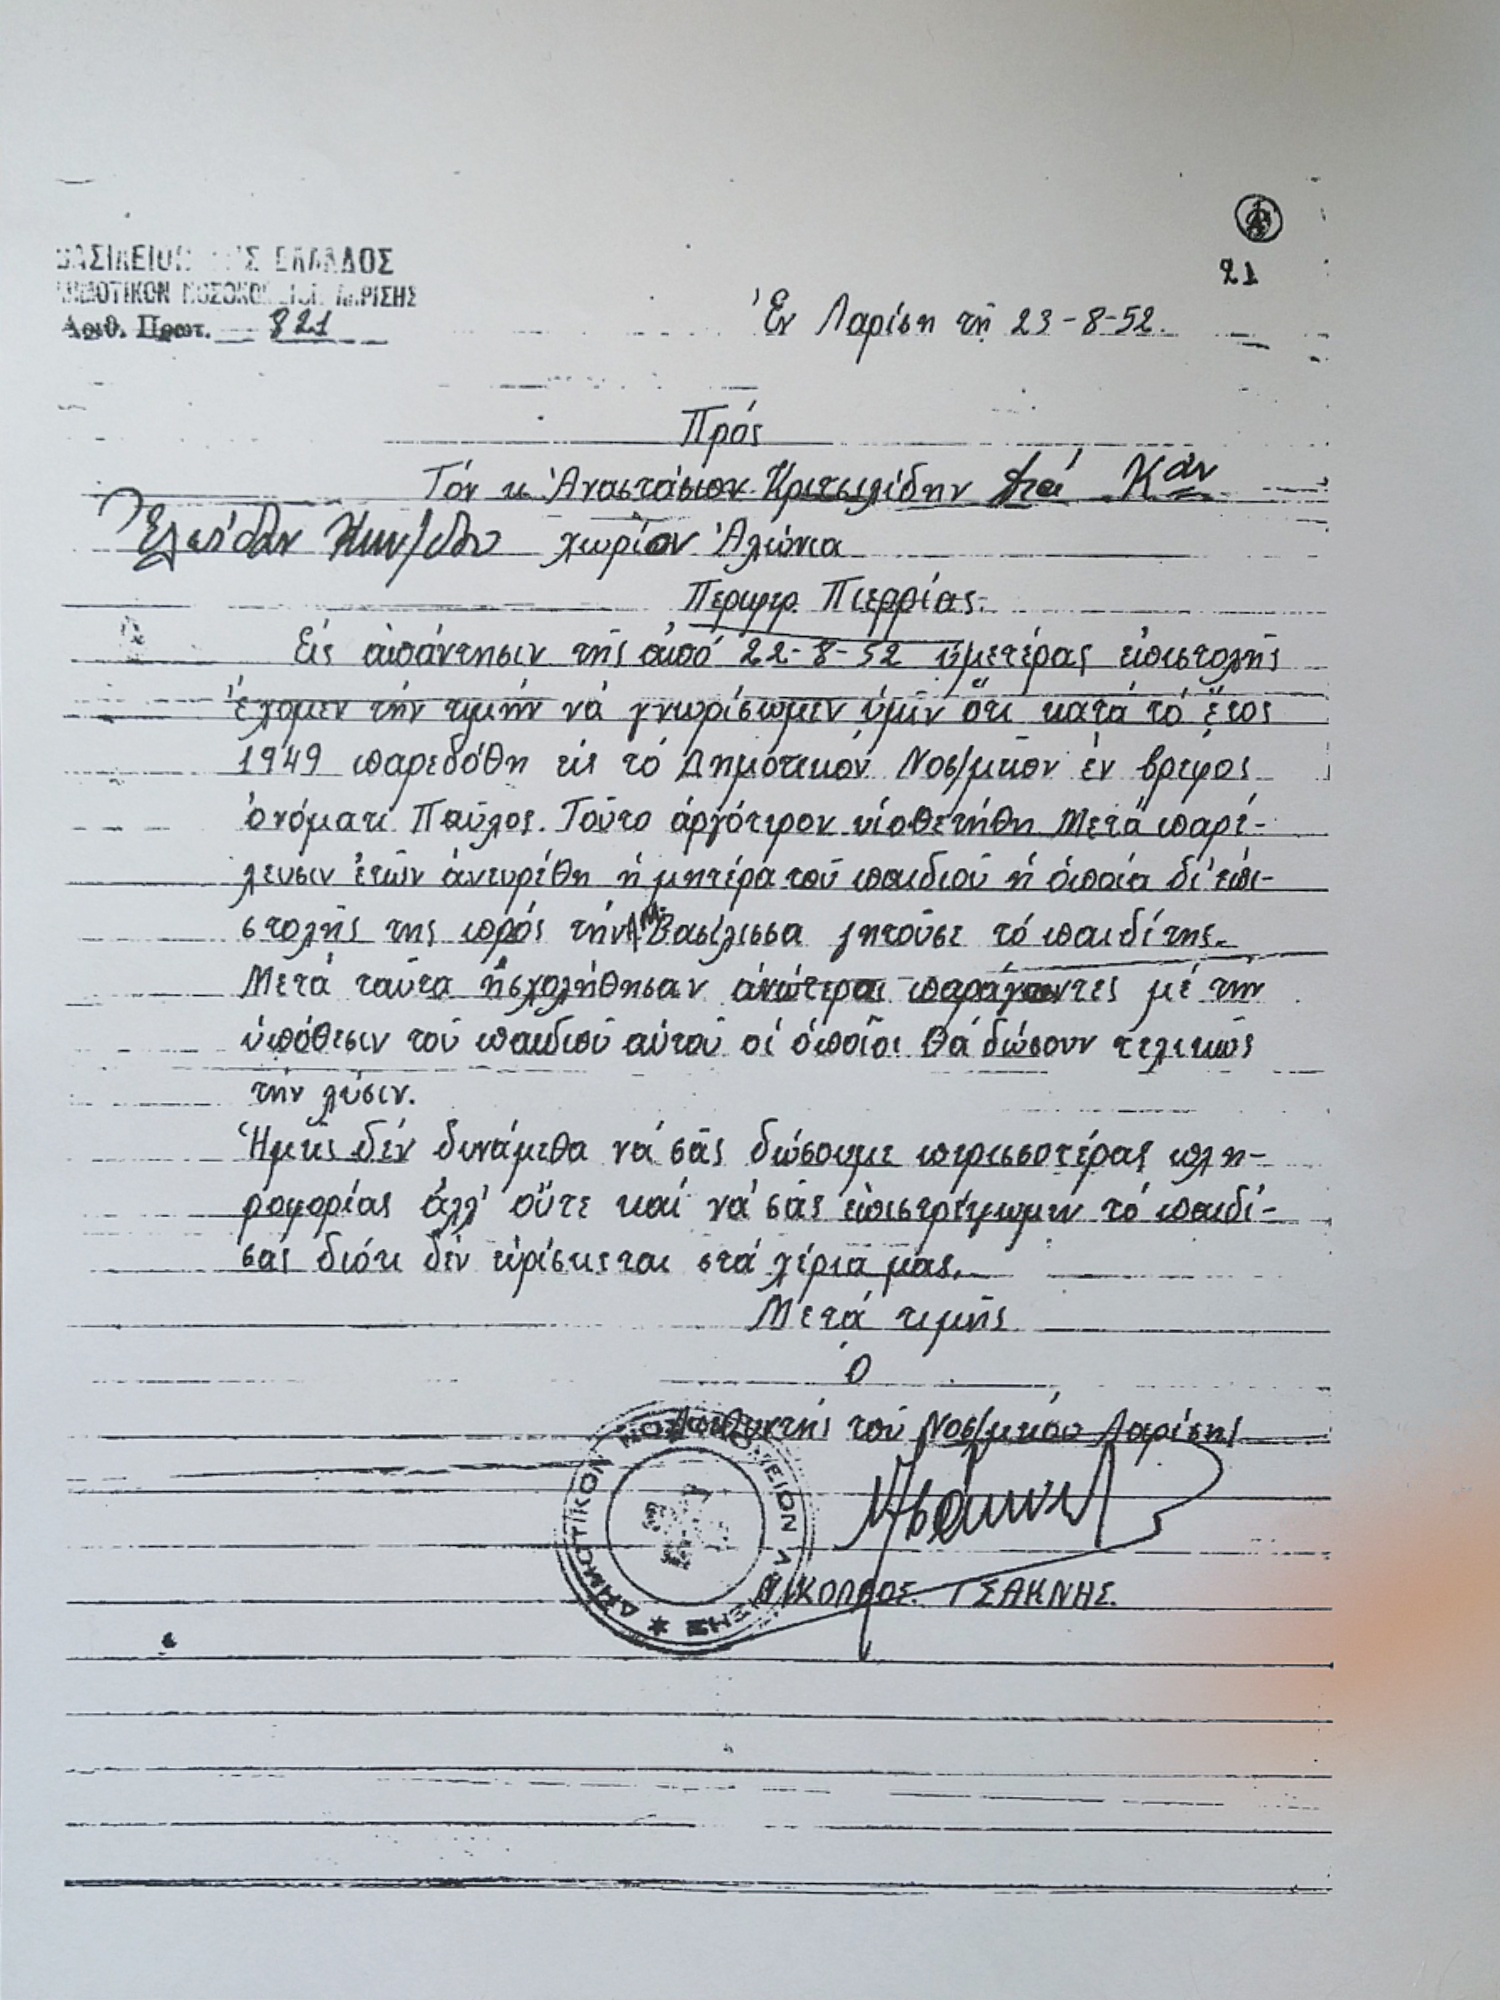 ΒΑΣΙΛΕΙΟΝ ΤΗΣ ΕΛΛΑΔΟΣ
ΔΗΜΟΤΙΚΟΝ ΝΟΣΟΚΟΜΕΙΟΝ ΛΑΡΙΣΗΣ
Ἀριθ. Πρωτ. 821
21
Ἐν Λαρίσῃ τῇ 23-8-52.
Πρός
Τόν κ Ἀναστάσιον Κριτσιλίδην καί Κάν
χωρίον Ἁλώνια
Περιφερ. Πιερρίας.
Εἰς ἀπάντησιν τῆς ἀπό 22-8-52 ὑμετέρας ἐπιστολῆς
ἔχομεν τήν τιμήν νά γνωρίσωμεν ὑμῖν ὅτι κατά τό ἔτος
1949 παρεδόθη εἰς τό Δημοτικόν Νοσ/μεῖον ἕν βρέφος
ὀνόματι Παῦλος. Τοῦτο ἀργότερον υἱοθετήθη Μετά παρέ-
λευσιν ἐτῶν ἀνευρέθη ἡ μητέρα τοῦ παιδιοῦ ἡ ὁποία δι' ἐπι-
στολῆς της πρός τήν Α.Μ. Βασίλισσα ζητοῦσε τό παιδί της.
Μετά ταῦτα ἠσχολήθησαν ἀνώτεροι παράγοντες μέ τήν
ὑπόθεσιν τοῦ παιδιοῦ αὐτοῦ οἱ ὁποῖοι θά δώσουν τελικῶς
τήν λύσιν.
Ἡμεῖς δέν δυνάμεθα νά σᾶς δώσουμε περισσοτέρας πλη-
ροφορίας ἀλλ' οὔτε καί νά σᾶς ἐπιστρέψωμεν τό παιδί-
σας διότι δέν εὑρίσκεται στά χέρια μας.
Μετά τιμῆς
Ὁ
Διευθυντής τοῦ Νοσ/μείου Λαρίσης
ΔΗΜΟΤΙΚΟΝ ΝΟΣΟΚΟΜΕΙΟΝ ΛΑΡΙΣΗΣ
ΝΙΚΟΛΑΟΣ ΤΣΑΚΝΗΣ.